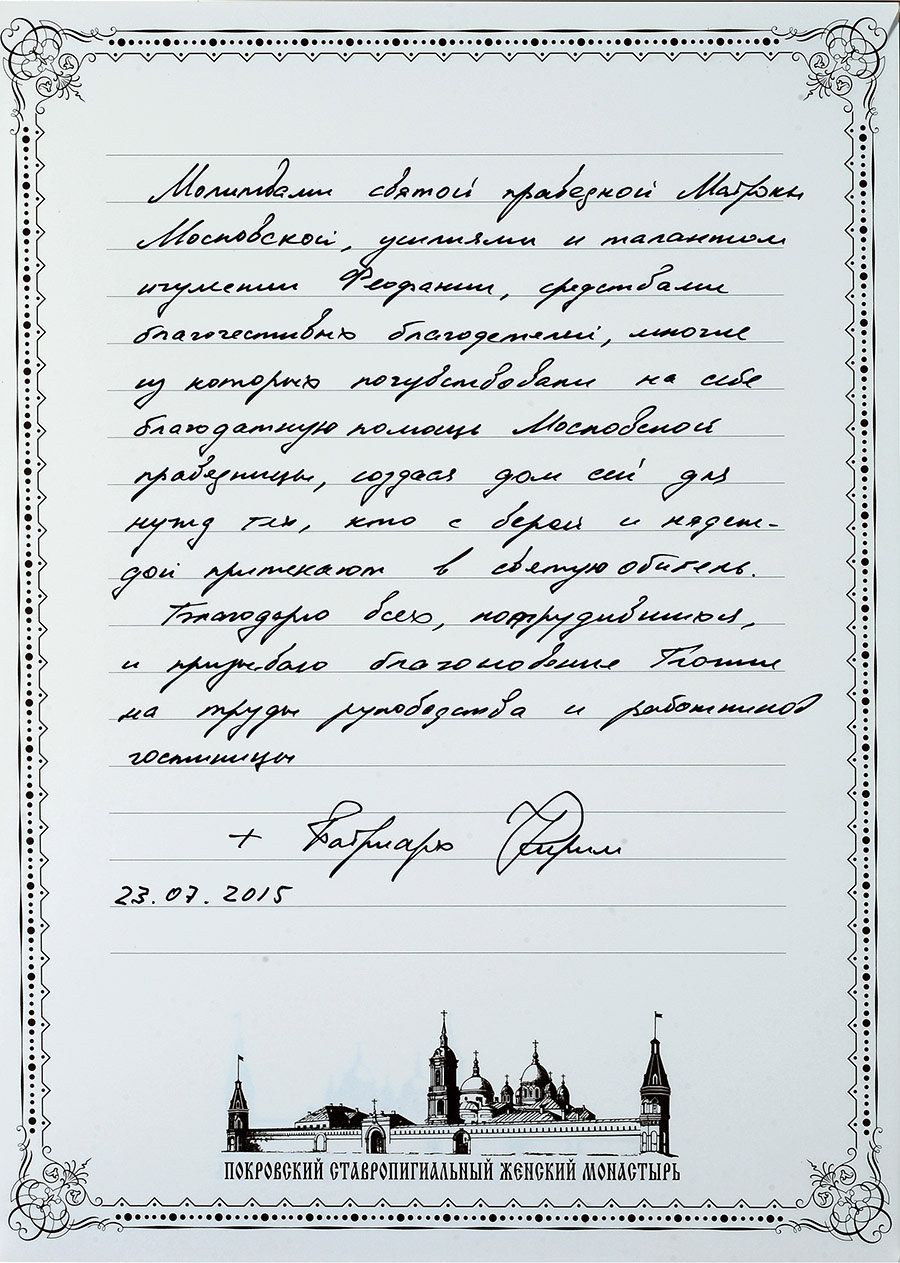 Молитвами святой праведной Матроны
Московской, усилиями и талантом
игумении Феофании, средствами
благочестивых благодетелей, многие
из которых почувствовали на себе
благодатную помощь Московской
праведницы, создася дом сей для
нужд тех, кто с верой и надеж-
дой притекают в святую обитель.
Благодарю всех, потрудившихся,
и призываю благословение Божие
на труды руководства и работников
гостиницы
+ Патриарх Кирилл
23.07.2015
ПОКРОВСКИЙ СТАВРОПИГИАЛЬНЫЙ ЖЕНСКИЙ МОНАСТЫРЬ